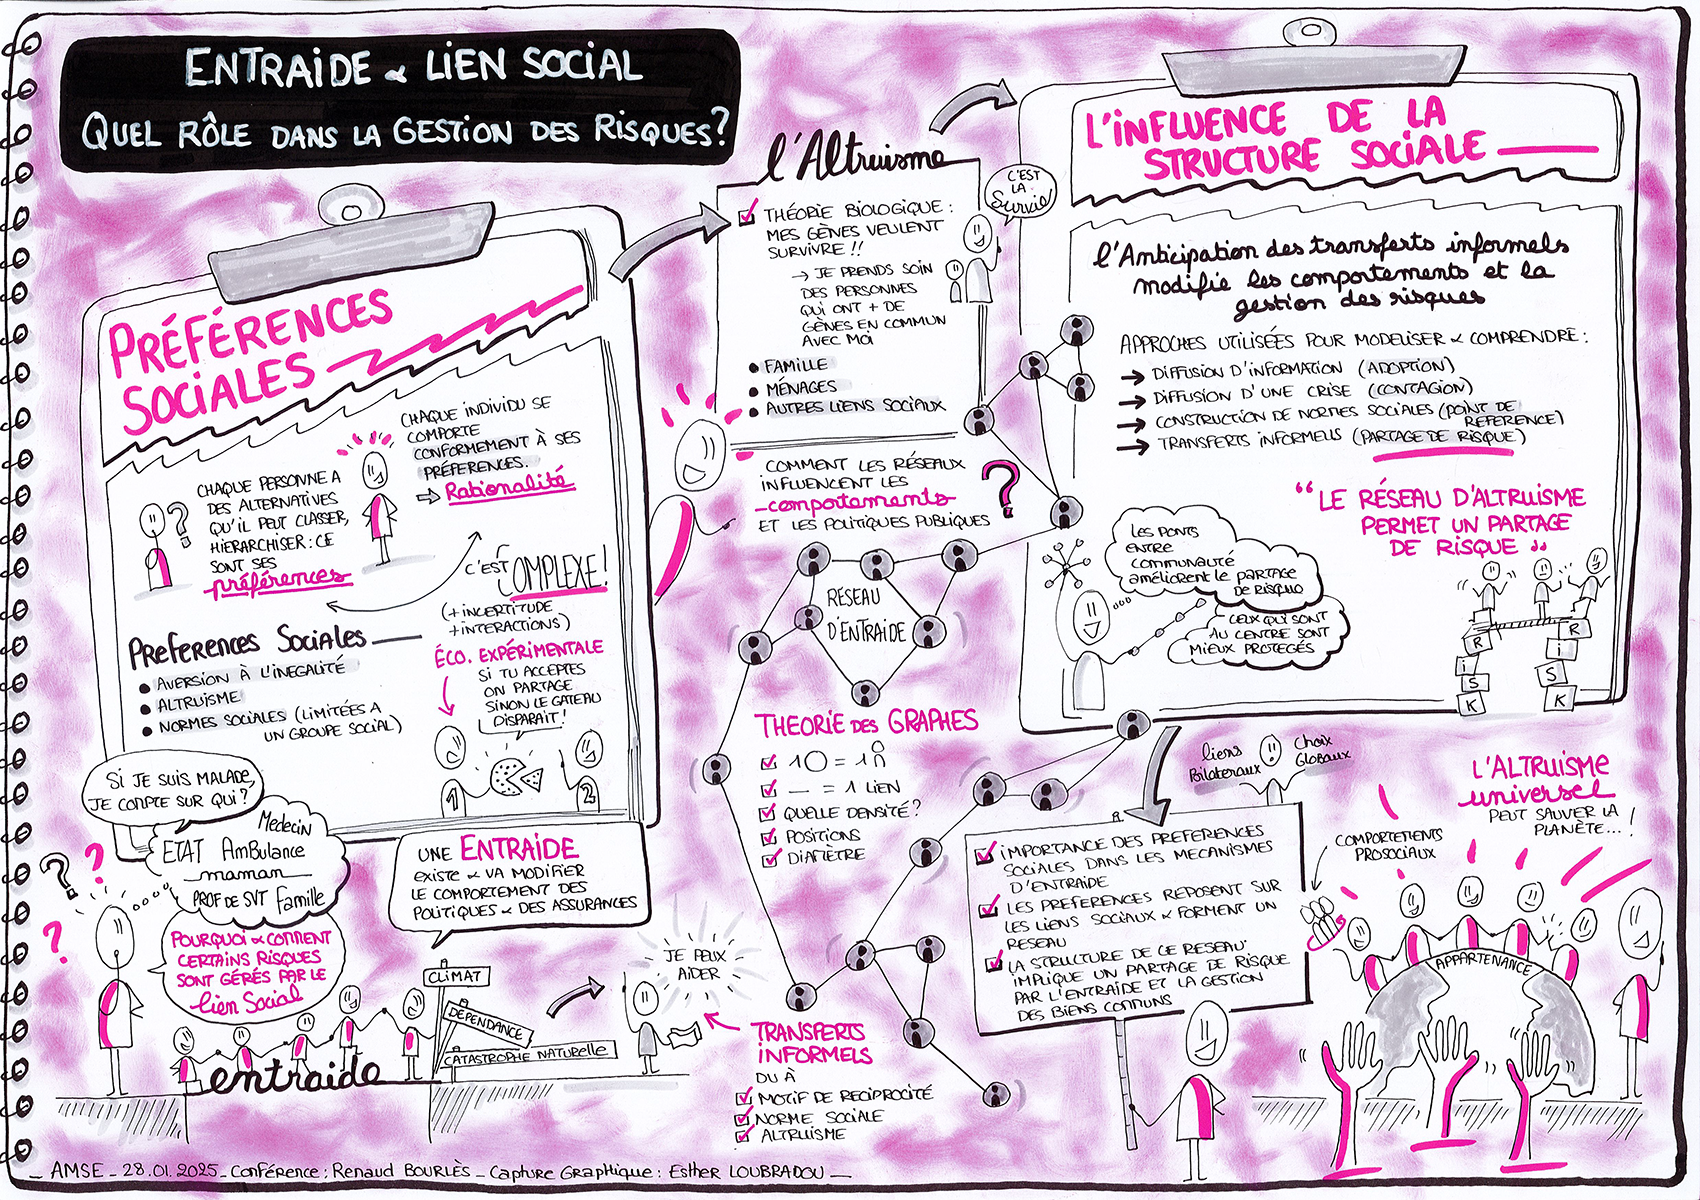 ENTRAIDE & LIEN SOCIAL
QUEL RÔLE DANS LA GESTION DES RISQUES?
PRÉFÉRENCES
SOCIALES
CHAQUE PERSONNE A
DES ALTERNATIVES
QU'IL PEUT CLASSER,
HIERARCHISER : CE
SONT SES
préférences
?
CHAQUE INDIVIDU SE
COMPORTE
CONFORMEMENT À SES
PRÉFERENCES.
⇒ Rationalité
C'EST COMPLEXE!
(+ INCERTITUDE
+ INTERACTIONS)
PREFERENCES SOCIALES
• AVERSION À L'INEGALITÉ
• ALTRUISME
• NORMES SOCIALES (LIMITÉES A
UN GROUPE SOCIAL)
ÉCO. EXPÉRIMENTALE
SI TU ACCEPTES
ON PARTAGE
SINON LE GATEAU
DISPARAIT!
1
2
SI JE SUIS MALADE,
JE COMPTE SUR QUI?
Médecin
ETAT Ambulance
maman
PROF DE SVT Famille
? ?
?
POURQUOI & COMMENT
CERTAINS RISQUES
SONT GÉRÉS PAR LE
lien Social
entraide
UNE ENTRAIDE
EXISTE & VA MODIFIER
LE COMPORTEMENT DES
POLITIQUES & DES ASSURANCES
CLIMAT
DÉPENDANCE
CATASTROPHE NATURELLE
JE PEUX
AIDER
l'Altruisme
THÉORIE BIOLOGIQUE :
MES GÈNES VEULENT
SURVIVRE !!
→ JE PRENDS SOIN
DES PERSONNES
QUI ONT + DE
GÈNES EN COMMUN
AVEC MOI
• FAMILLE
• MÉNAGES
• AUTRES LIENS SOCIAUX
C'EST
LA
Survie
COMMENT LES RÉSEAUX
INFLUENCENT LES
comportements
ET LES POLITIQUES PUBLIQUES
?
RÉSEAU
D'ENTRAIDE
THEORIE DES GRAPHES
1 ○ = 1
— = 1 LIEN
QUELLE DENSITÉ?
POSITIONS
DIAMÈTRE
TRANSFERTS
INFORMELS
DU À
MOTIF DE RECIPROCITÉ
NORME SOCIALE
ALTRUISME
L'INFLUENCE DE LA
STRUCTURE SOCIALE
l'Anticipation des transferts informels
modifie les comportements et la
gestion des risques
APPROCHES UTILISÉES POUR MODELISER & COMPRENDRE :
→ DIFFUSION D'INFORMATION (ADOPTION)
→ DIFFUSION D'UNE CRISE (CONTAGION)
→ CONSTRUCTION DE NORMES SOCIALES (POINT DE
REFERENCE)
→ TRANSFERTS INFORMELS (PARTAGE DE RISQUE)
“LE RÉSEAU D'ALTRUISME
PERMET UN PARTAGE
DE RISQUE”
LES PONTS
ENTRE
COMMUNAUTÉ
améliorent le PARTAGE
DE RISQUE
CEUX QUI SONT
AU CENTRE SONT
MIEUX PROTEGÉS
R R
I I
S S
K K
liens
Bilateraux
!
Choix
Globaux
IMPORTANCE DES PREFERENCES
SOCIALES DANS LES MECANISMES
D'ENTRAIDE
LES PREFERENCES REPOSENT SUR
LES LIENS SOCIAUX & FORMENT UN
RESEAU
LA STRUCTURE DE CE RESEAU
IMPLIQUE UN PARTAGE DE RISQUE
PAR L'ENTRAIDE ET LA GESTION
DES BIENS COMMUNS
L'ALTRUISME
universel
PEUT SAUVER LA
PLANÈTE...!
COMPORTEMENTS
PROSOCIAUX
APPARTENANCE
AMSE - 28.01.2025 - Conférence : Renaud BOURLÈS - Capture Graphique : Esther LOUBRADOU